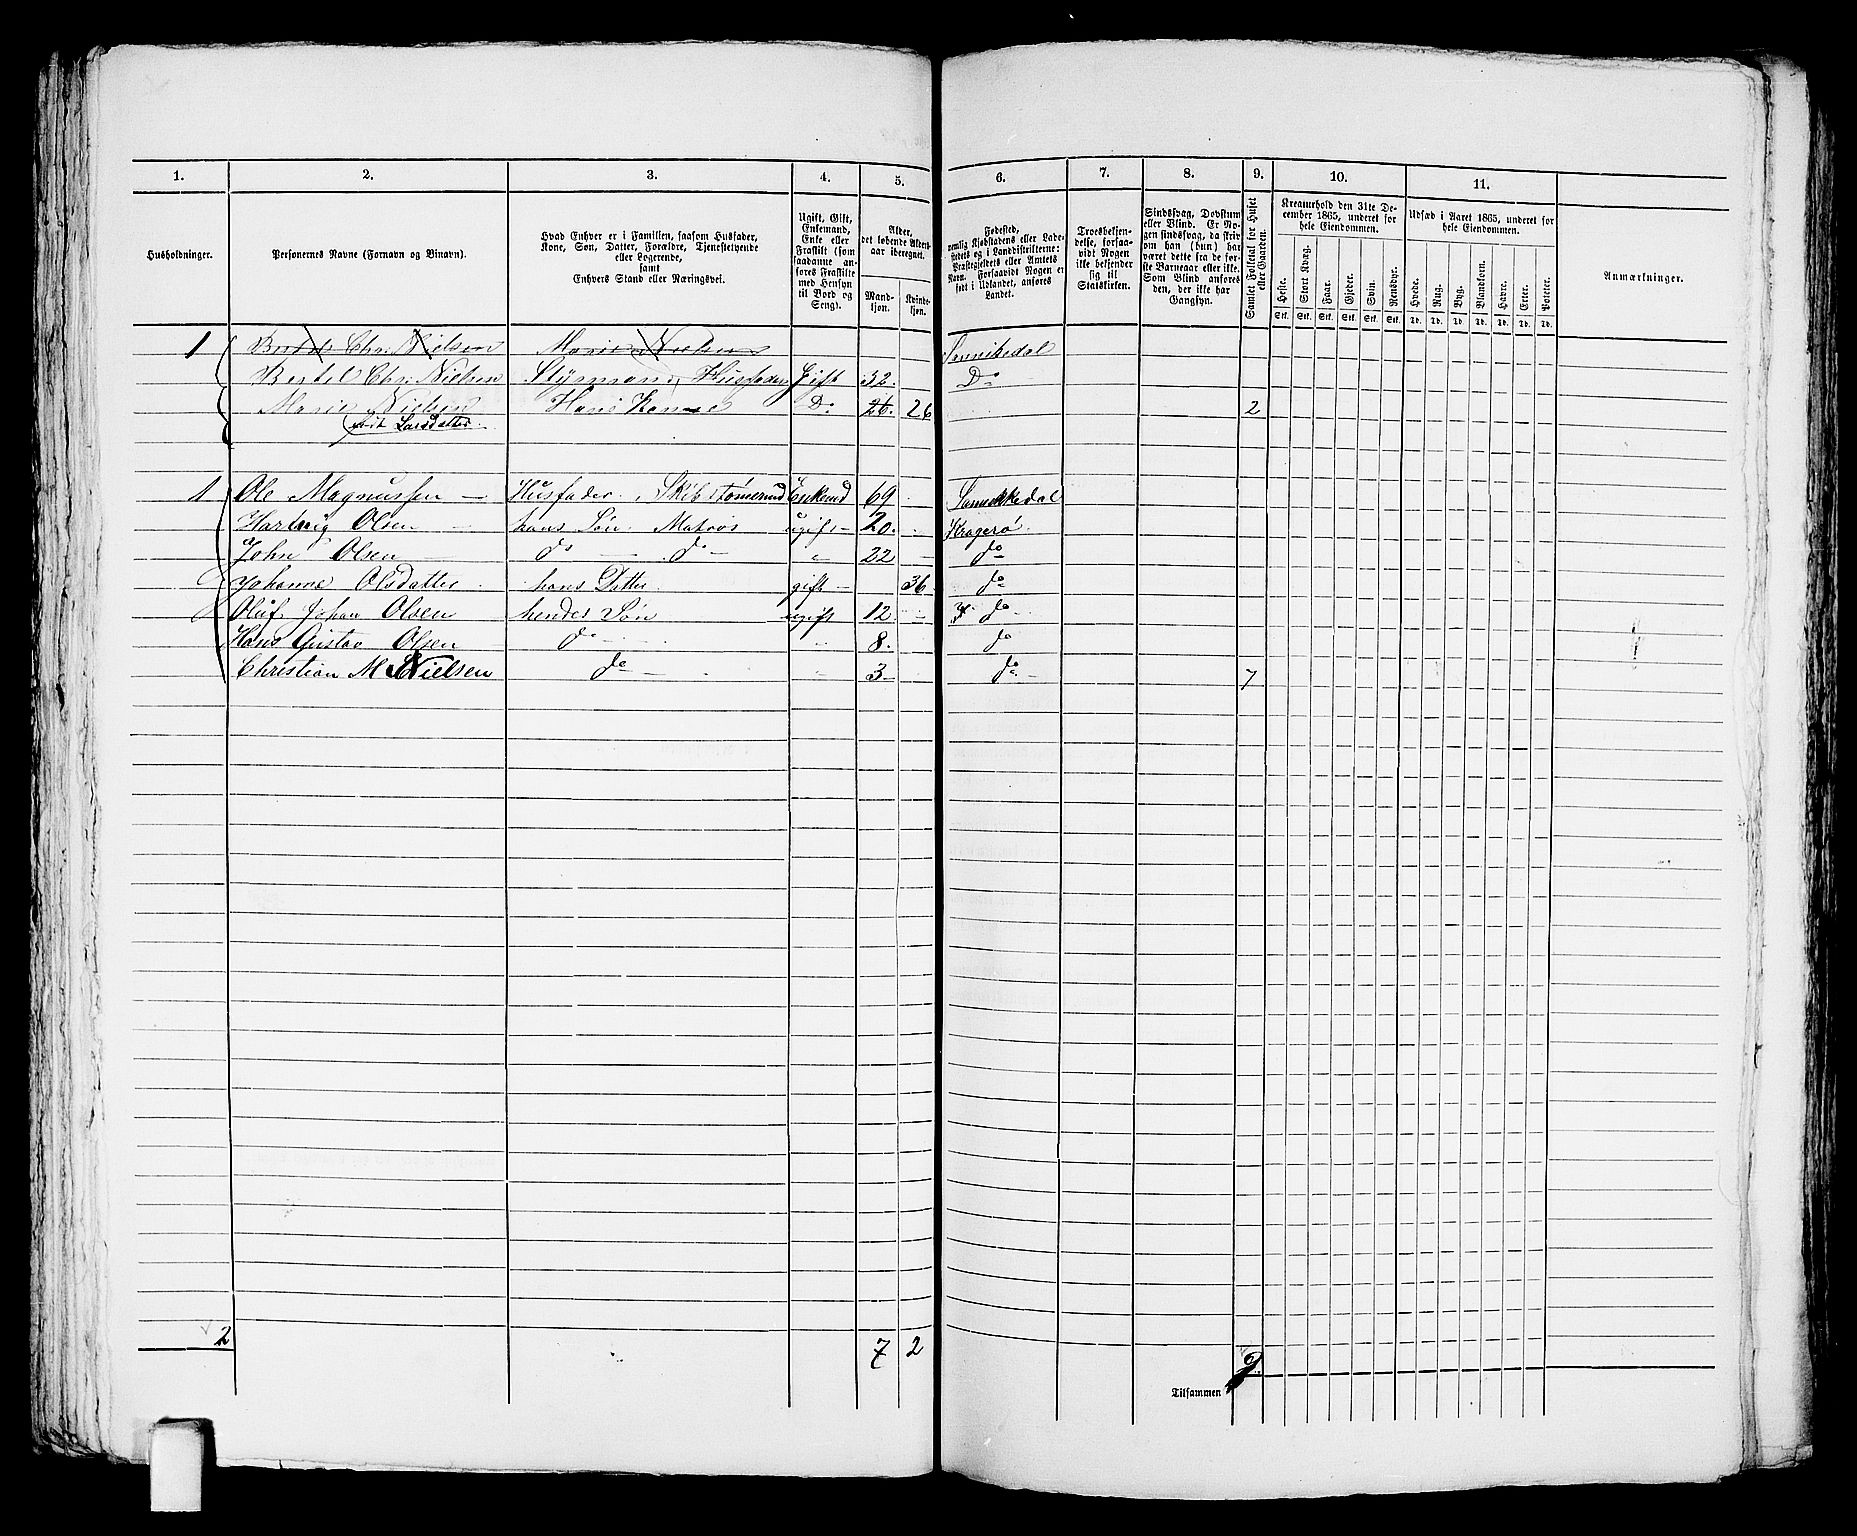 1. 2. 3. 4. 5. 6. 7. 8. 9. 10. 11.
Husholdninger.
Personernes Navne (Fornavn og Binavn).
Hvad Enhver er i Familien, saasom Husfader,
Kone, Søn, Datter, Forældre, Tjenestetyende
eller Logerende,
samt
Enhvers Stand eller Næringsvei.
Ugift, Gift,
Enkemand,
Enke eller
Fraskilt (som
saadanne an-
føres Fraskilte
med Hensyn
til Bord og
Seng).
Alder,
det løbende Alders-
aar iberegnet.
Mand-
kjøn.
Kvinde-
kjøn.
Fødested,
nemlig Kjøbstadens eller Lade-
stedets og i Landdistrikterne
Præstegjeldets eller Amtets
Navn. Forsaavidt Nogen er
født i Udlandet, anføres
Landet.
Troesbekjen-
delse, forsaa-
vidt Nogen
ikke bekjender
sig til
Statskirken.
Sindssvag, Døvstum
eller Blind. Er No-
gen sindssvag, da skriv
om han (hun) har
været dette fra de før-
ste Barneaar eller ikke.
Som Blind anføres
den, der ikke har
Gangsyn.
Samlet Folketal for Huset
eller Gaarden.
Kreaturhold den 31te De-
cember 1865, underet for
hele Eiendommen.
Heste. Stort Kvæg. Faar. Gjeder. Svin. Rensdyr.
Stk. Stk. Stk. Stk. Stk. Stk.
Udsæd i Aaret 1865, underet for
hele Eiendommen.
Hvede. Rug. Byg. Blandkorn. Havre. Erter. Poteter.
Td. Td. Td. Td. Td. Td. Td.
Anmærkninger.
1 Chr. Nielsen Marie Nielsen Sannikedal
Bertel Chr. Nielsen Styrmand, Husfader Gift 32. Do
Marie Nielsen Hans Konne Do 26. 26 2
født Larsdatter.
1 Ole Magnussen Husfader, Skibstømmermd Enkemd 69 Sannikkedal
Hartvig Olsen hans Søn. Matros ugift 20. Kragerø.
John Olsen do do " 22 do
Johanne Olsdatter hans Datter gift 36. do
Oluf Johan Olsen hendes Søn ugift 12 do
Hans Gustav Olsen do 8. do
Christian M Nielsen do 3 do 7
2 7 2
Tilsammen 9